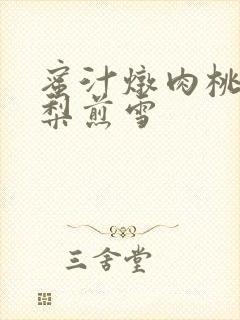 蜜汁燉肉桃
梨煎雪
三舍堂